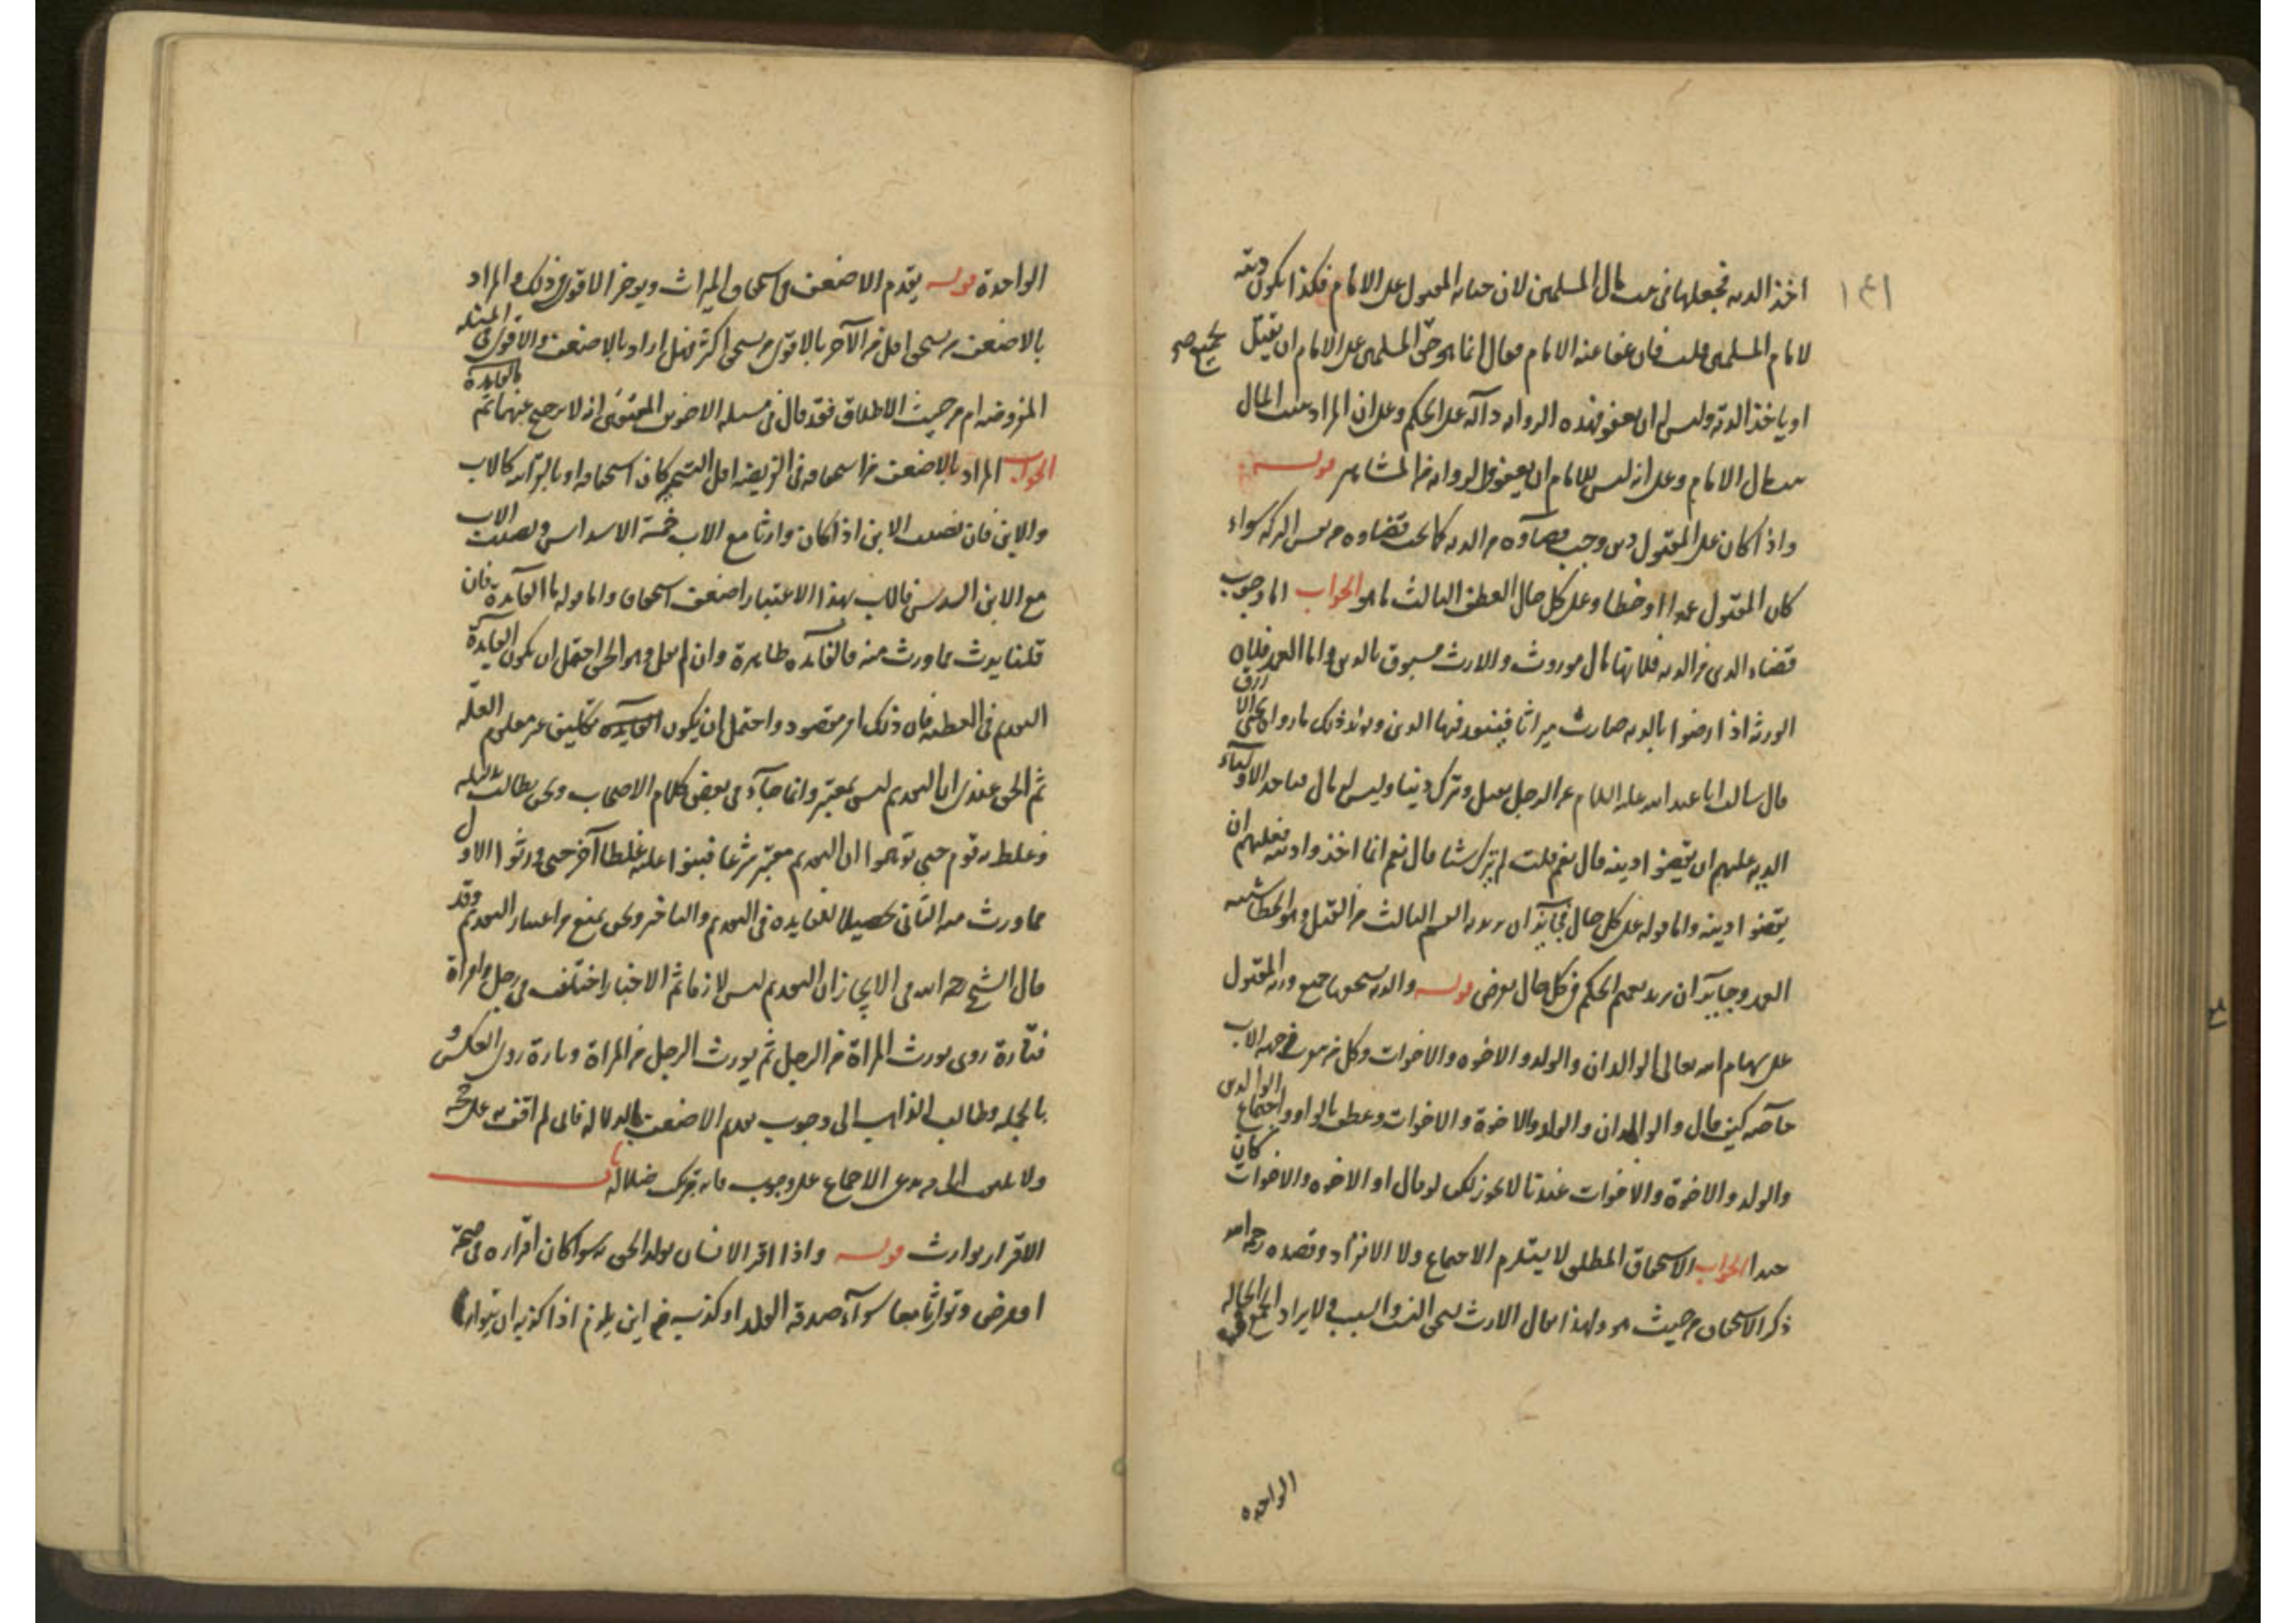 ١٤١
اخذ الديه فجعلها فى بيت مال المسلمين لان جنايه المقتول على الامام فكذا يكون ديته
لامام المسلمين قلت فان عفا عنه الامام فقال انما هو حق المسلمين على الامام ان يقتل
اويا خذ الدية وليس له ان يعفو فهذه الروايه دالّة على الحكم وعلى ان المراد ببيت المال
بيت مال الامام وعلى انه ليس للامام ان يعفو والروايه من المشاهير قوله
واذا كان على المقتول دين وجب قضاؤه من الديه كما يجب قضاؤه من نفس التركه سواء
كان المقتول عمدا او خطا وعلى كل حال العطف الثالث ما هو الجواب اما وجوب
قضاء الدين من الديه فلانها مال موروث والارث مسبوق بالدين واما العمد فلان
الورثه اذا رضوا بالديه صارت ميراثا فينفذ فيها الدين ويؤيد ذلك مارواه يحيى الازرق
قال سالت ابا عبد الله عليه السلام عن الرجل يقتل وترك دينا وليس له مال فياخذ الاولياء
الديه عليهم ان يقضوا دينه قال نعم قلت لم يترك شيئا قال نعم انما اخذوا ديته فعليهم ان
يقضوا دينه واما قوله على كل حال فجائز ان يريد به القسم الثالث من القتل وهو الخطا شبيه
العمد وجايز ان يريد تعميم الحكم فى كل حال يفرض قوله والديه يستحقها جميع ورثه المقتول
على سهام الله تعالى الوالدان والولد والاخوه والاخوات وكل من يتقرب من جهه الاب
خاصه كيف قال والوالدان والولد والاخوة والاخوات وعطف بالواو واجتماع الوالدين
والولد والاخوة والاخوات عندنا لا يجوز لكن لو قال او الاخوه والاخوات كان
جيدا الجواب الاستحقاق المطلق لا يستلزم الاجتماع ولا الانفراد وقصده رحمه الله
ذكر الاستحقاق من حيث هو ولهذا يقال الارث يستحق بالنسب والسبب ولا يراد الجمع فى الحاله
الواحده
الواحدة قوله يقدم الاضعف فى استحقاق الميراث ويوخر الاقوى فى ذلك والمراد
بالاضعف من يستحق اقل من الآخر بالاقوى من يستحق اكثر فهل اراد بالاضعف والاقوى فى المسئله
المفروضه ام من حيث الاطلاق فقد قال فى مسئله الاخوين المعتقين انه لا ترجيح عنهما ثم ما الفايدة
الجواب المراد بالاضعف من استحقاقه فى الفريضه اقل القسم كان استحقاقه او بالقرآبه كالاب
والابن فان نصيب الابن اذا كان وارثا مع الاب خمسة الاسداس ونصيب الاب
مع الابن السدس فالاب بهذا الاعتبار اضعف استحقاقا واما قوله ما الفآيدة فان
قلنا يورث مما ورث منه فالفآيده ظاهرة وان لم نقل وهو الحق احتمل ان يكون الفآيدة
التقديم فى العطيه فان ذلك امر مقصود واحتمل ان يكون الفآيدة تكليف غير معلوم العلّه
ثم الحق عندى ان التقديم ليس بمعتبر وانما جآء فى بعض كلام الاصحاب ونحن نطالب بدليله
وغلط به قوم حتى توهموا ان التقديم معتبر شرعا فبنوا عليه غلطا آخر حتى ورثوا الاول
مما ورث منه الثانى تحصيلا للفايده فى التقديم والتاخير ونحن نمنع من اعتبار التقديم وقد
قال الشيخ رحمه الله فى الايجاز ان التقديم ليس لازما ثم الاخبار اختلف فى رجل وامراة
فتارة روى يورث المراة من الرجل ثم يورث الرجل من المراة وتارة روى العكس و
بالجمله وطالب الذاهب الى وجوب تقديم الاضعف بالدلاله فانى لم اقف به على حجه
ولا تلتفت الى من يدعى الاجماع على وجوب فانه يترك ضلاله باب
الاقرار بوارث قوله واذا اقر الانسان بولد الحق به سوا كان اقراره فى صحة
او مرض وتوارثا معا سوآء صدقه الولد او كذبه من اين يلزم اذا كذبه ان يتوارثا